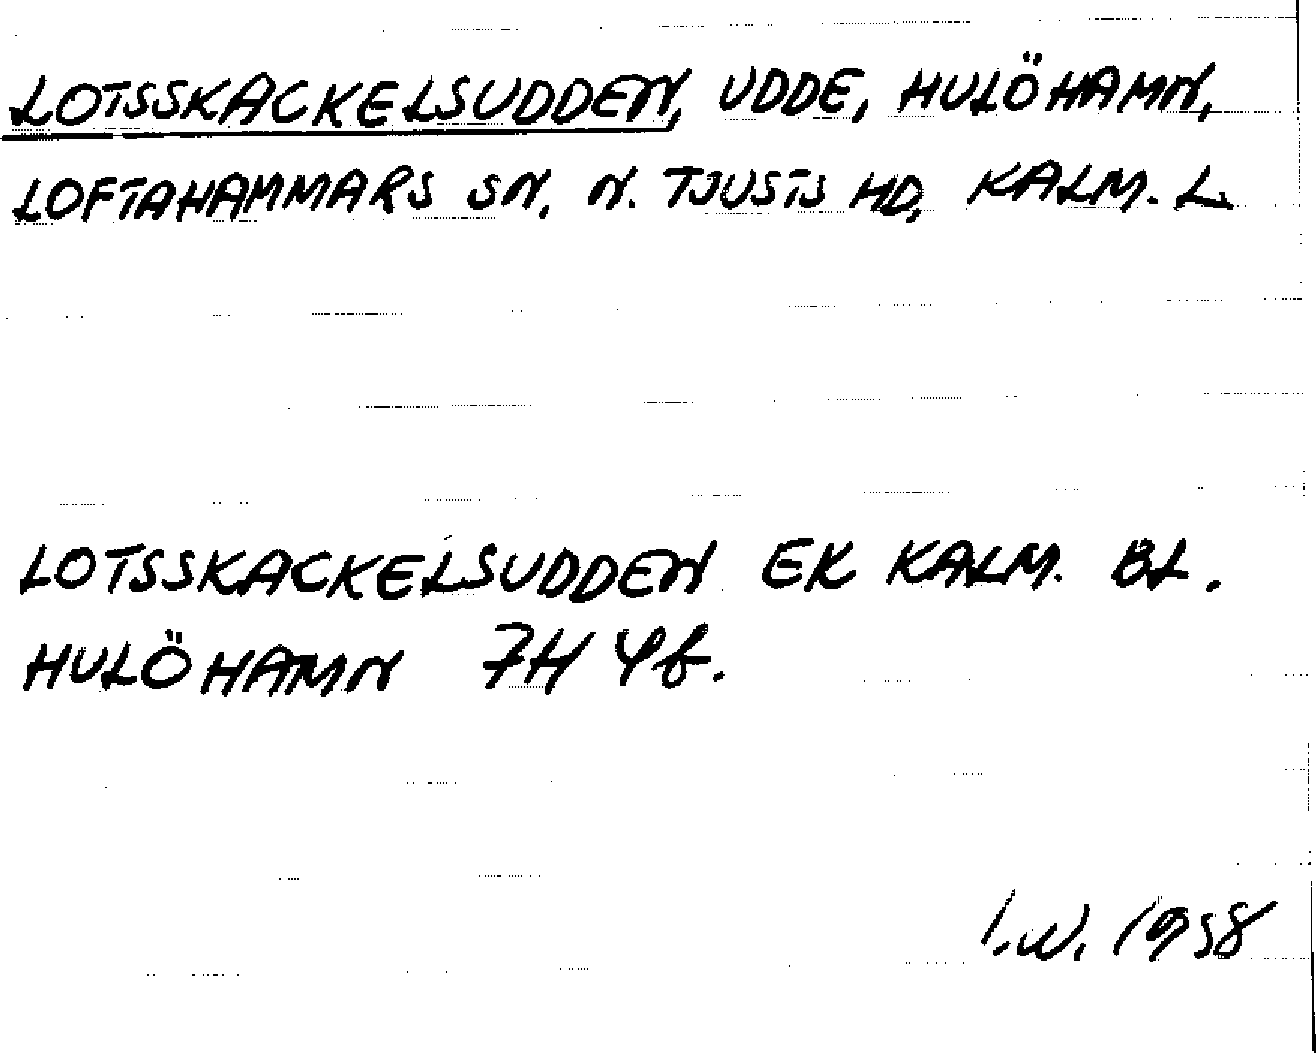 LOTSSKACKELSUDDEN, UDDE, HULÖHAMN,
LOFTAHAMMARS SN, N. TJUSTS HD, KALM. L.
LOTSSKACKELSUDDEN EK KALM. BL.
HULÖHAMN 7H 4f.
I.W. 1958